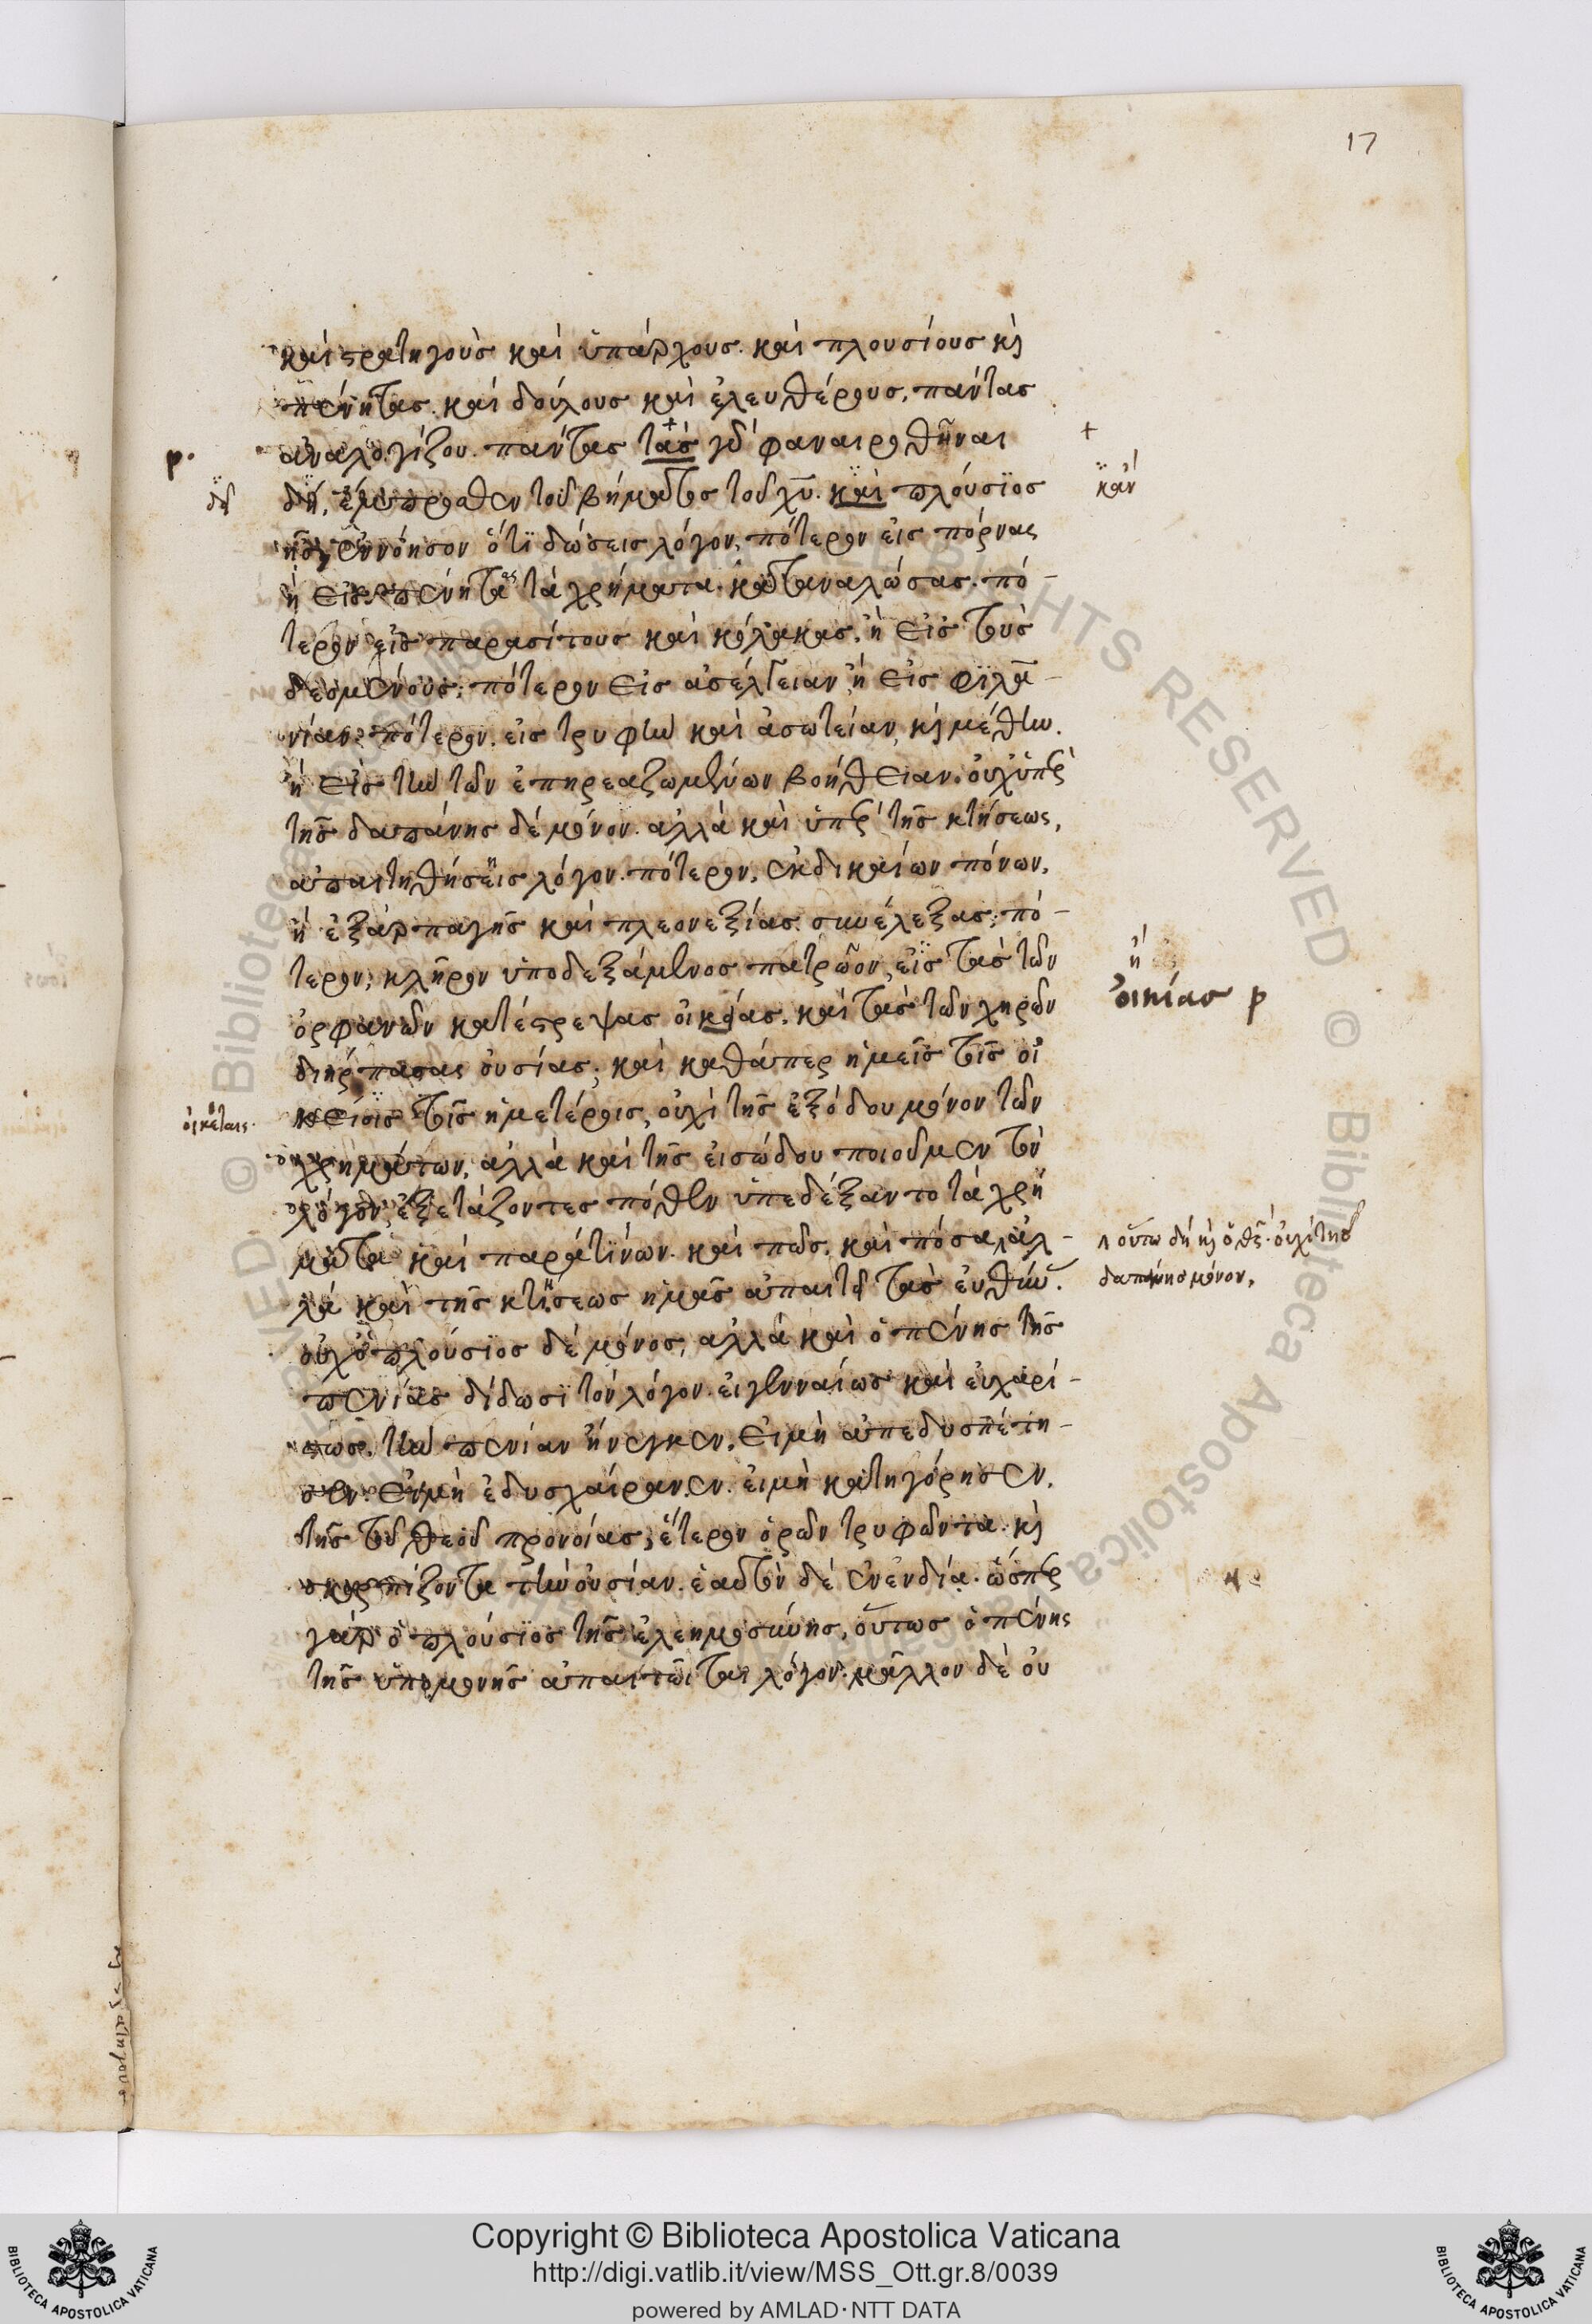 17
καὶ στρατηγοὺς καὶ ὑπάρχους. καὶ πλουσίους κὶ
πένητας. καὶ δούλους καὶ ἐλευθέρους, πάντας
ἀναλογίζου. πάντας τὰς γδ φαναιρωθῆναι
+
ρ.
δεῖ
δὴ, ἔμπροσθεν τοῦ βήματος τοῦ χυ. καὶ πλούσιος
κἂν
ᾖς, ἐννόησον ὅτι δώσεις λόγον, πότερον εἰς πόρνας
ἢ εἰς πένητας τὰ χρήματα καταναλώσας. πό-
τερον εἰς παρασίτους καὶ κόλακας, ἢ εἰς τοὺς
δεομένους; πότερον εἰς ἀσέλγειαν ἢ εἰς φιλα-
νίαν πότερον. εἰς τρυφὴν καὶ ἀσωτείαν, κὶ μέθην.
ἢ εἰς τὴν τῶν ἐπηρεαζωμένων βοήθειαν. οὐχ ὑπὲρ
τῆς δαπάνης δὲ μόνον. ἀλλὰ καὶ ὑπὲρ τῆς κτήσεως,
ἀπαιτηθήσεις λόγον. πότερον, ἐκ δικαίων πόνων,
ἢ ἐξ ἁρπαγῆς καὶ πλεονεξίας συνέλεξας; πό-
τερον, κλῆρον ὑποδεξάμενος πατρῶον, εἰς τὰς τῶν
ἢ
ὀρφανῶν κατέστρεψας οἰκίας, καὶ τὰς τῶν χηρῶν
οἰκίας ρ
διήρπασας οὐσίας; καὶ καθάπερ ἡμεῖς τοῖς οἰ
κείοις τοῖς ἡμετέροις, οὐχὶ τῆς ἐξόδου μόνον τῶν
οἰκέταις.
χρημάτων, ἀλλὰ καὶ τῆς εἰσώδου ποιοῦμεν τὸν
λόγον, ἐξετάζοντες πόθεν ὑπεδέξαντο τὰ χρή
ματα καὶ παρά τίνων. καὶ πῶς, καὶ πόσα, ἀλ-
οὕτω δὴ κὶ ὁ θς. οὐχὶ τῆς
δαπάνης μόνον,
λὰ καὶ τῆς κτίσεως ἡμᾶς ἀπαιτεῖ τὰς εὐθύν.
οὐχ ὁ πλούσιος δὲ μόνος, ἀλλὰ καὶ ὁ πένης τῆς
πενίας δίδωσι τὸν λόγον. εἰ γενναίως καὶ εὐχαρί-
στως. τὴν πενίαν ἤνεγκεν, εἰ μὴ ἀπεδυσπέτη-
σεν. εἰ μὴ ἐδυσχαίρανεν. εἰ μὴ κατηγόρησεν,
τῆς τοῦ θεοῦ προνοίας, ἕτερον ὁρῶν τρυφῶντα. κὶ
σκορπίζοντα τὴν οὐσίαν. ἑαυτὸν δὲ ἐν ἐνδία. ὥσπερ
γὰρ ὁ πλούσιος τῆς ἐλεημοσύνης, οὕτως ὁ πένης
τῆς ὑπομονῆς ἀπαιτῶται λόγον. μᾶλλον δὲ οὐ
© Biblioteca Apostolica Vaticana
ALL RIGHTS RESERVED
Copyright © Biblioteca Apostolica Vaticana
http://digi.vatlib.it/view/MSS_Ott.gr.8/0039
powered by AMLAD·NTT DATA
BIBLIOTECA APOSTOLICA VATICANA
BIBLIOTECA APOSTOLICA VATICANA